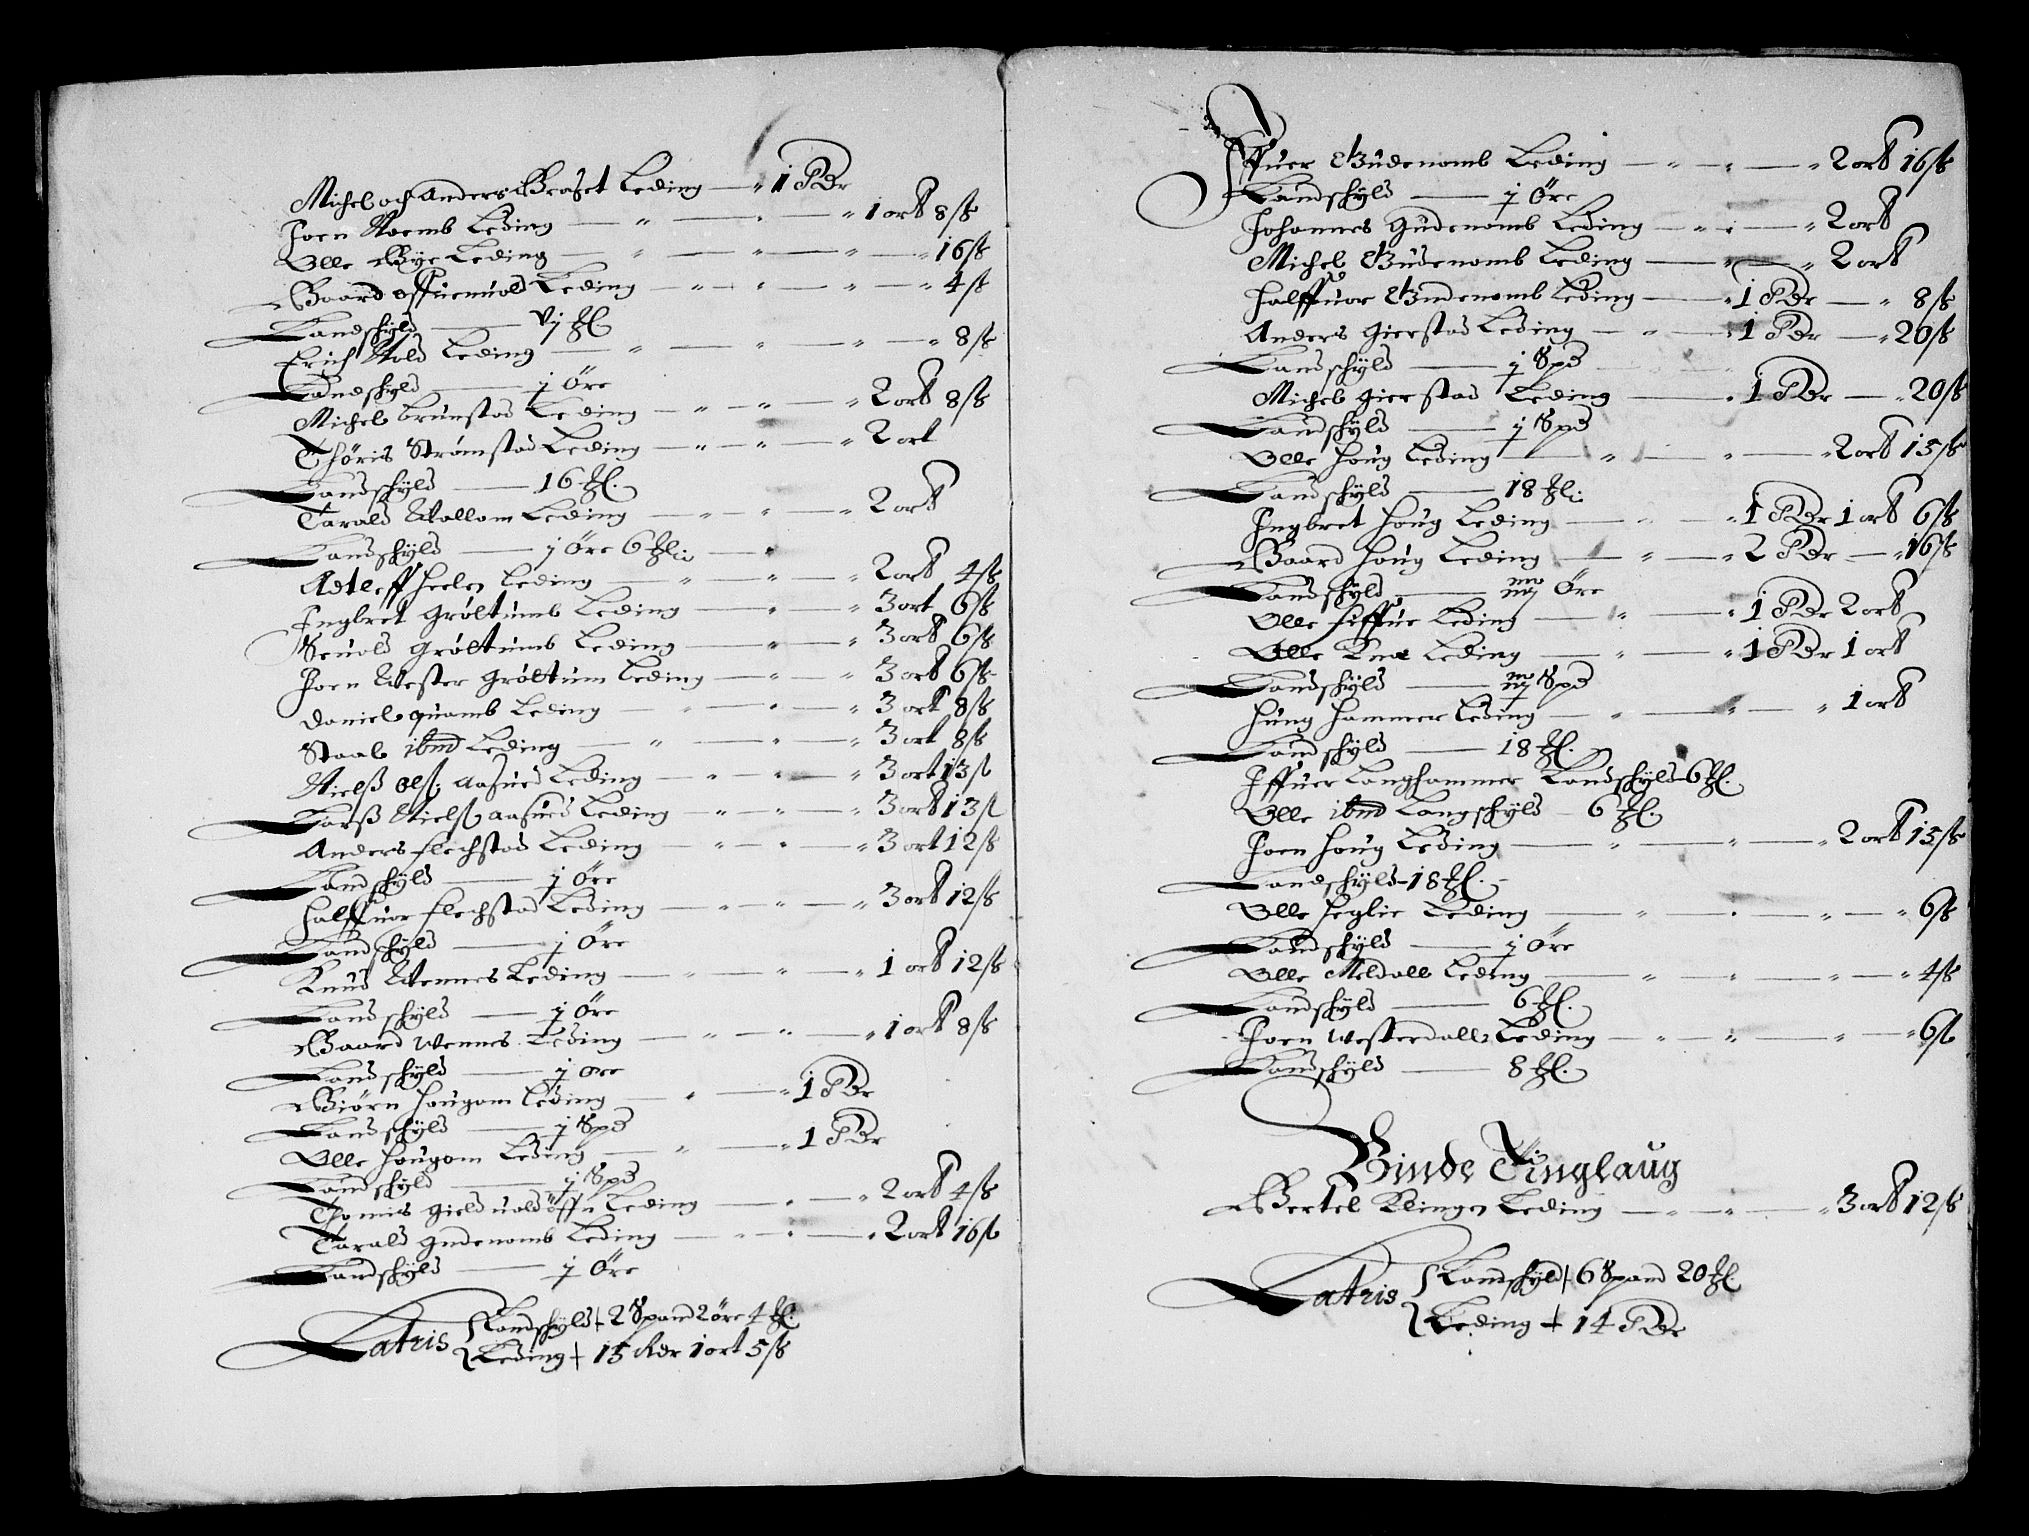 Michel och Anders Braset Leding — 1 Rdr
Joen Noemb Leding — 1 ort 8 sk
Olle Bye Leding — 16 sk
Baard Offuervold Leding — 4 sk
Landschyld — vj ℔
Erich Vold Leding — 8 sk
Landschyld — j Øre
Michel brunstad Leding — 2 ort 8 sk
Thøris Strømstad Leding — 2 ort
Landschyld — 16 ℔
Tarald Wollom Leding — 2 ort
Landschyld — j Øre 6 ℔
Adtleff heelen Leding — 2 ort 4 sk
Ingbret Grøltumb Leding — 3 ort 6 sk
Seuold Grøltumb Leding — 3 ort 6 sk
Joen Wester Grøltum Leding — 3 ort 6 sk
Daniel quamb Leding — 3 ort 8 sk
Staal ibm Leding — 3 ort 8 sk
Nielß Ols: Aasued Leding — 3 ort 13 s
Larß Niels Aasued Leding — 3 ort 13 s
Anders flechstad Leding — 3 ort 12 sk
Landschyld — j Øre
Halffuor flechstad Leding — 3 ort 12 sk
Landschyld — j Øre
Knud Wennes Leding — 1 ort 12 sk
Landschyld — j Øre
Baard Wennes Leding — 1 ort 8 sk
Landschyld — j Øre
Biørn Hougom Leding — 1 Rdr
Landschyld — j Spd
Olle Hougom Leding — 1 Rdr
Landschyld — j Spd
Thomis Gield Leding — 2 ort 4 sk
Tarald Gudenomb Leding — 2 ort 16 s
Landschyld — j Øre
Latris { Landschyld + 2 Spand 2 øre 4 ℔
{ Leding + 15 Rdr 1 ort 5 sk
Iffuer Gudenomb Leding — 2 ort 16 sk
Landschyld — j Øre
Johannes Gudenomb Leding — 2 ort
Michel Gudenomb Leding — 2 ort
Halffuor Gudenomb Leding — 1 Rdr — 8 sk
Anders Gierstad Leding — 1 Rdr — 20 sk
Landschyld — j Spd
Michel Gierstad Leding — 1 Rdr — 20 sk
Landschyld — j Spd
Olle Houg Leding — 2 ort 15 sk
Landschyld — 18 ℔
Ingbret Houg Leding — 1 Rdr 1 ort 6 sk
Baard Houg Leding — 2 Rdr — 16 s
Landschyld — Øre
Olle Leding — 1 Rdr 2 ort
Olle Knæ Leding — 1 Rdr 1 ort
Landschyld — Spd
Hung Hammer Leding — 1 ort
Landschyld — 18 ℔
Iffuer Langhammer Landschyld 6 ℔
Olle ibm Langschyld — 6 ℔
Joen Houg Leding — 2 ort 15 sk
Landschyld — 18 ℔
Olle Heglie Leding — 6 sk
Landschyld — j Øre
Olle Meldall Leding — 4 sk
Landschyld — 6 ℔
Joen Westerdall Leding — 6 s
Landschyld — 8 ℔
Binde Tinglaug
Bertel Klingen Leding — 3 ort 12 sk
Latris { Landschyld + 6 Spand 20 ℔
{ Leding + 14 Rdr